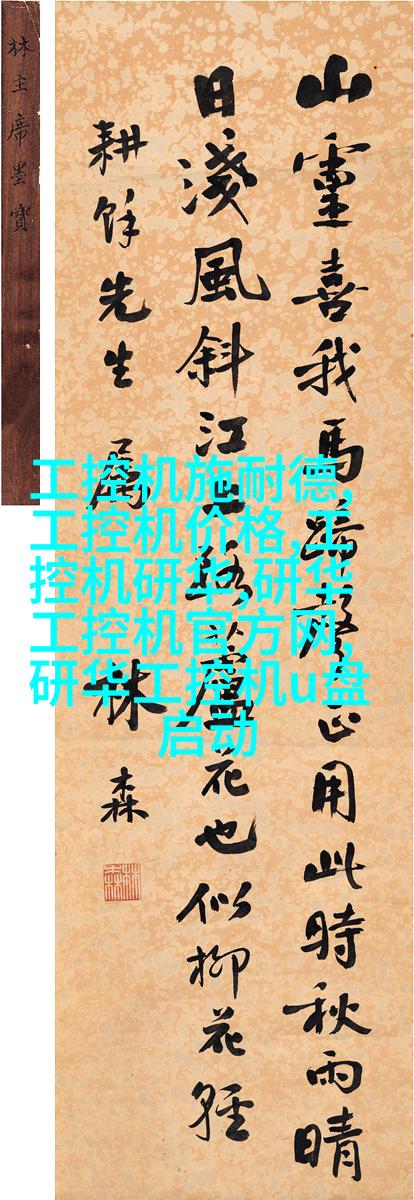 山靈喜我馬蹄聲正用此時秋雨晴
日淺風斜江上路蘆花也似柳花輕
耕餘先生 屬 林森
林主席墨寶
工控机施耐德,
工控机价格,工
控机研华,研华
工控机官方网,
研华工控机u盘
启动